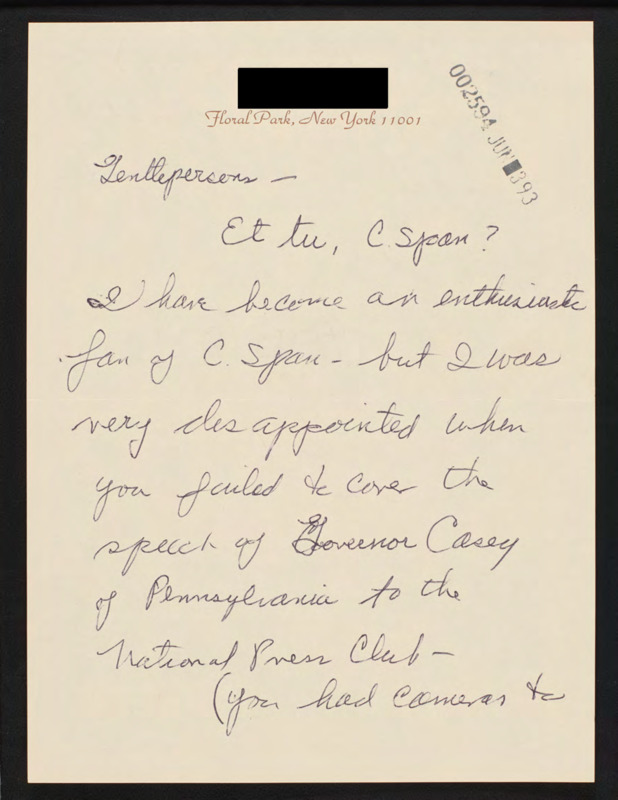 Floral Park, New York 11001
002594 JUN 393
Gentlepersons —
Et tu, C. Span?
I have become an enthusiastic
fan of C. Span - but I was
very disappointed when
you failed to cover the
speech of Governor Casey
of Pennsylvania to the
National Press Club —
(you had cameras to